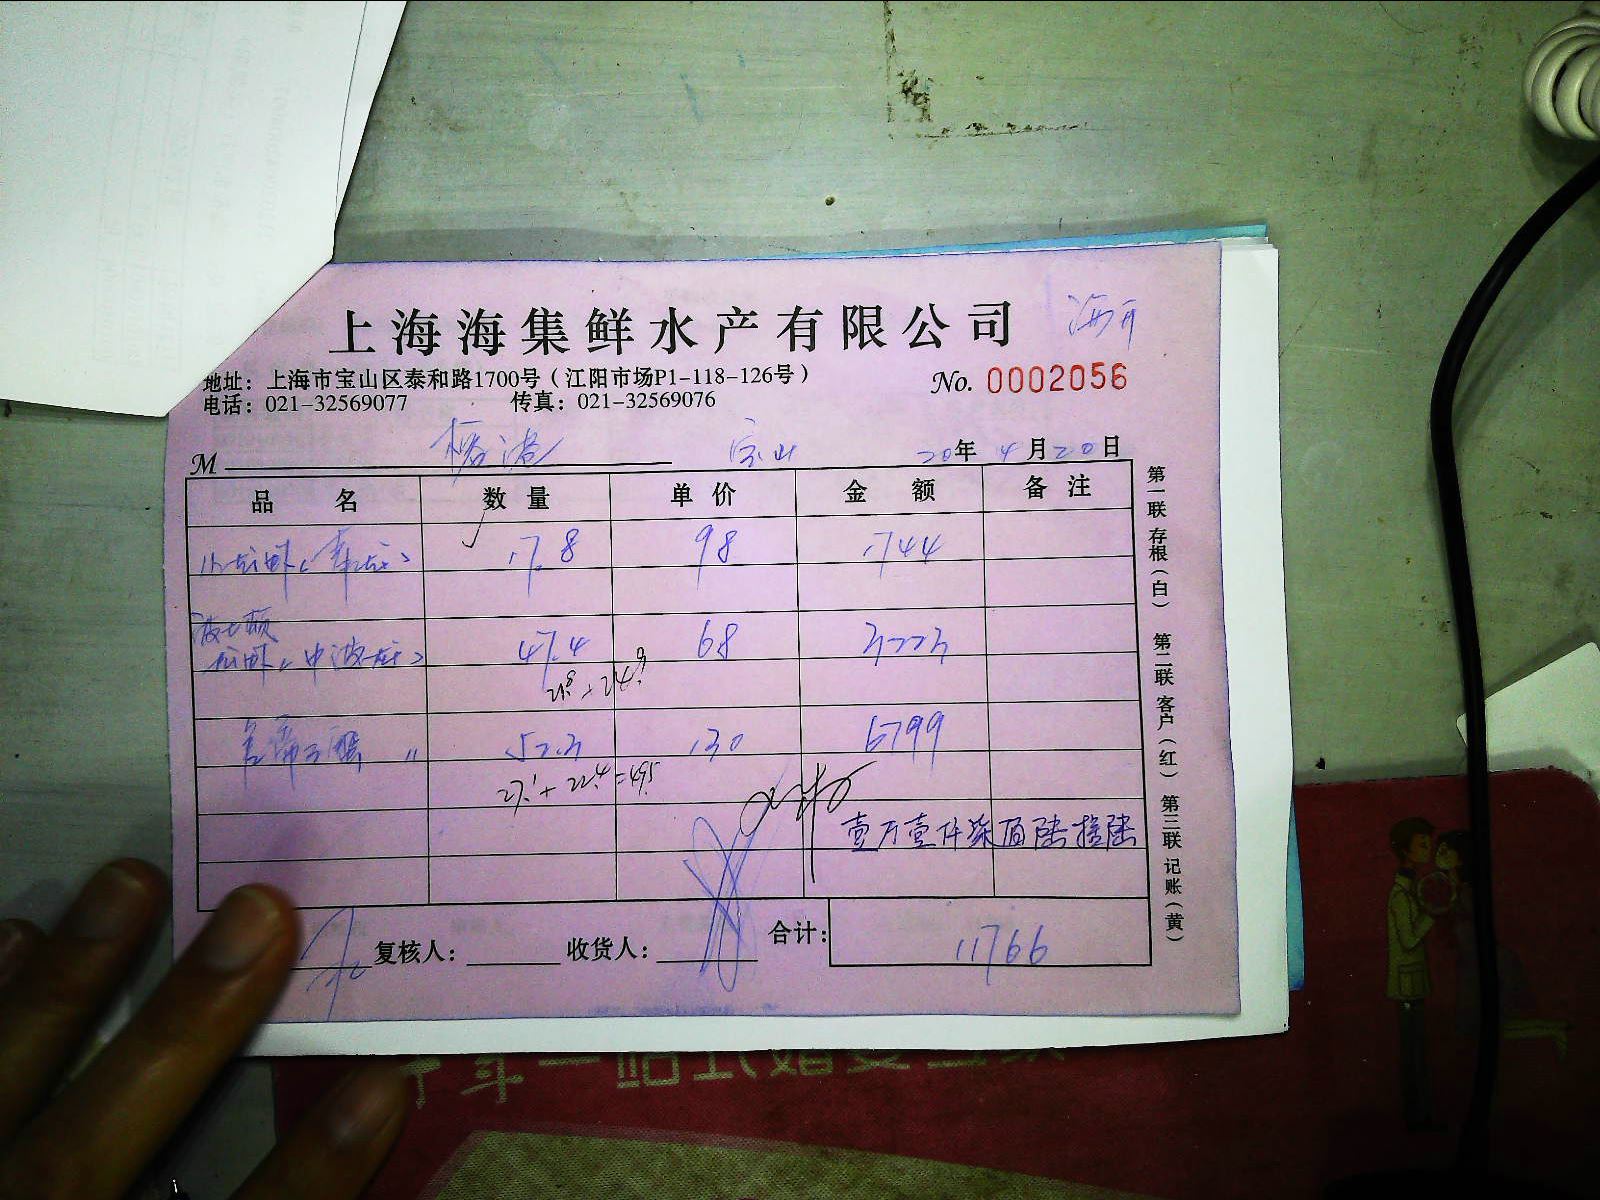 上海海集鲜水产有限公司
地址：上海市宝山区泰和路1700号（江阳市场P1-118-126号）
No. 0002056
电话：021-32569077 传真：021-32569076
M 宝山 20年 4月20日
品名 数量 单价 金额 备注
17.8 98 1744
47.4 68 3223
52.3 130 6799
27.1+22.4=49.5
壹万壹仟柒佰陆拾陆
复核人： 收货人： 合计： 11766
第一联 存根（白） 第二联 客户（红） 第三联 记账（黄）